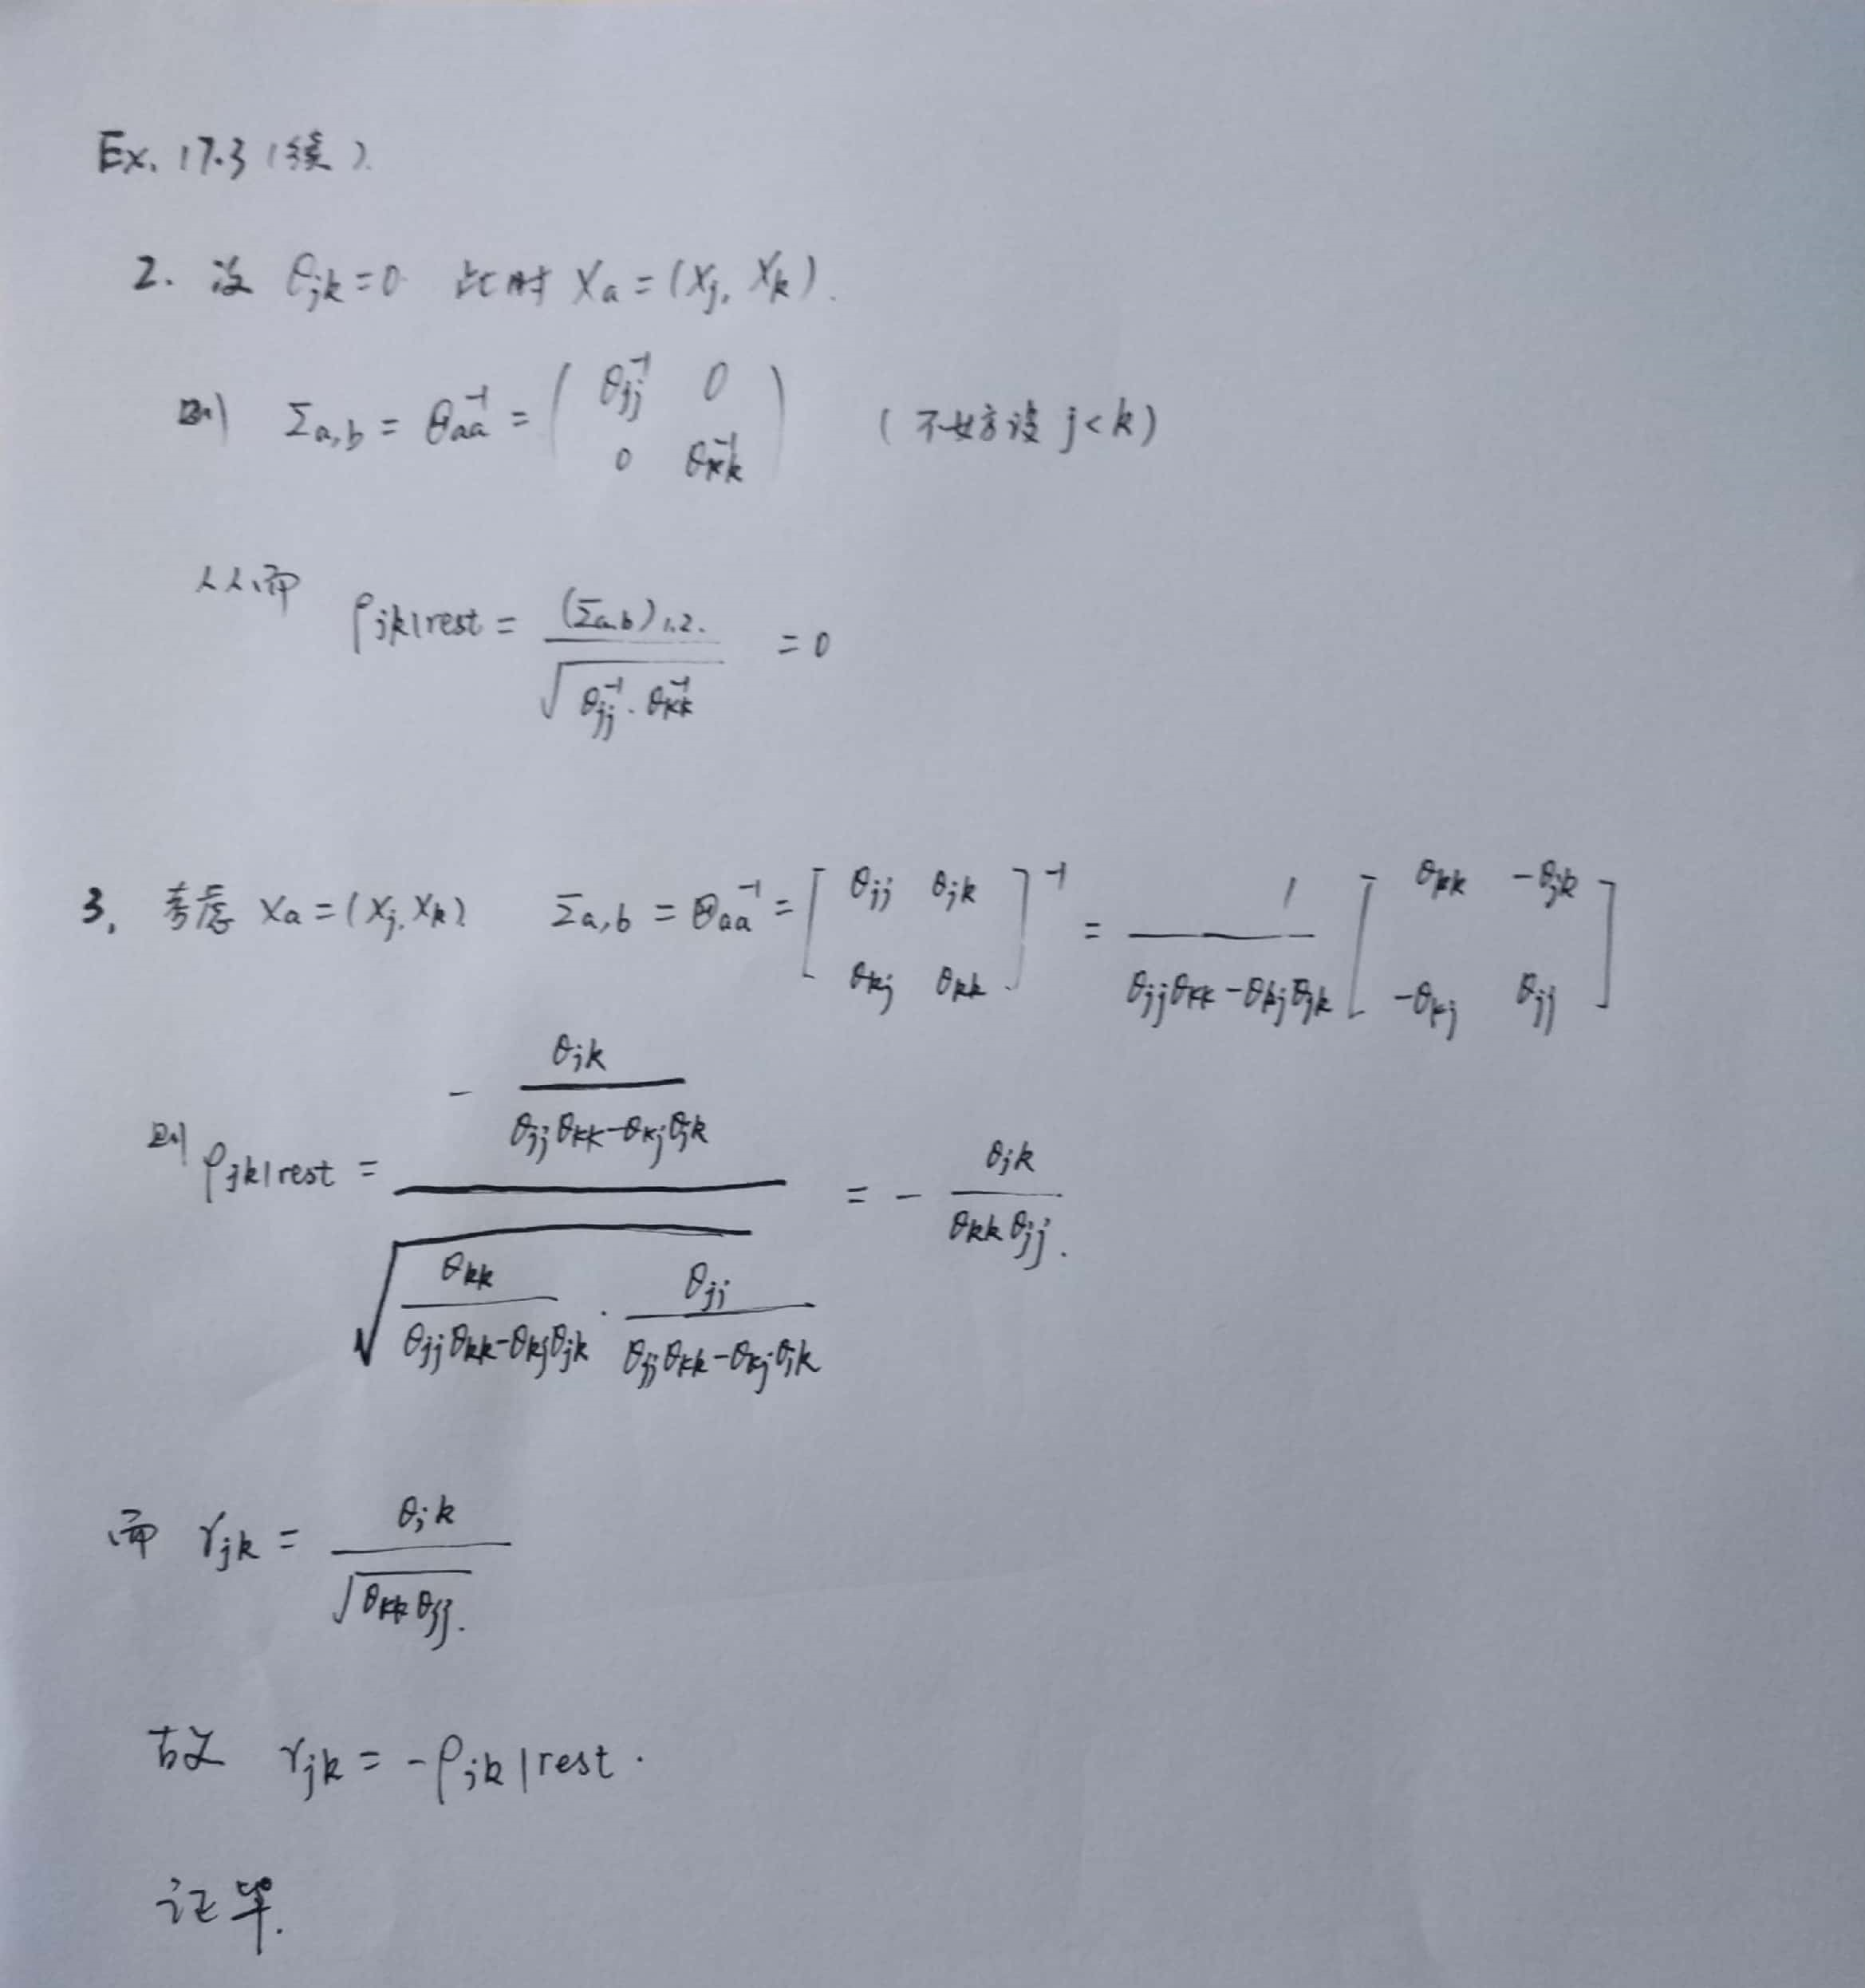 Ex. 17.3 (续).
2. 设 θjk = 0 此时 Xa = (Xj, Xk).
则 Σa,b = Θaa⁻¹ = ( θjj⁻¹ 0 ; 0 θkk⁻¹ ) (不妨设 j<k)
从而 ρjk|rest = (Σa,b)1,2. / √(θjj⁻¹ · θkk⁻¹) = 0
3. 考虑 Xa = (Xj, Xk) Σa,b = Θaa⁻¹ = [ θjj θjk ; θkj θkk ]⁻¹ = 1 / (θjjθkk - θkjθjk) [ θkk -θjk ; -θkj θjj ]
则 ρjk|rest = ( - θjk / (θjjθkk - θkjθjk) ) / √( θkk / (θjjθkk - θkjθjk) · θjj / (θjjθkk - θkjθjk) ) = - θjk / (θkkθjj).
而 γjk = θjk / √(θkkθjj).
故 γjk = -ρjk|rest.
证毕.